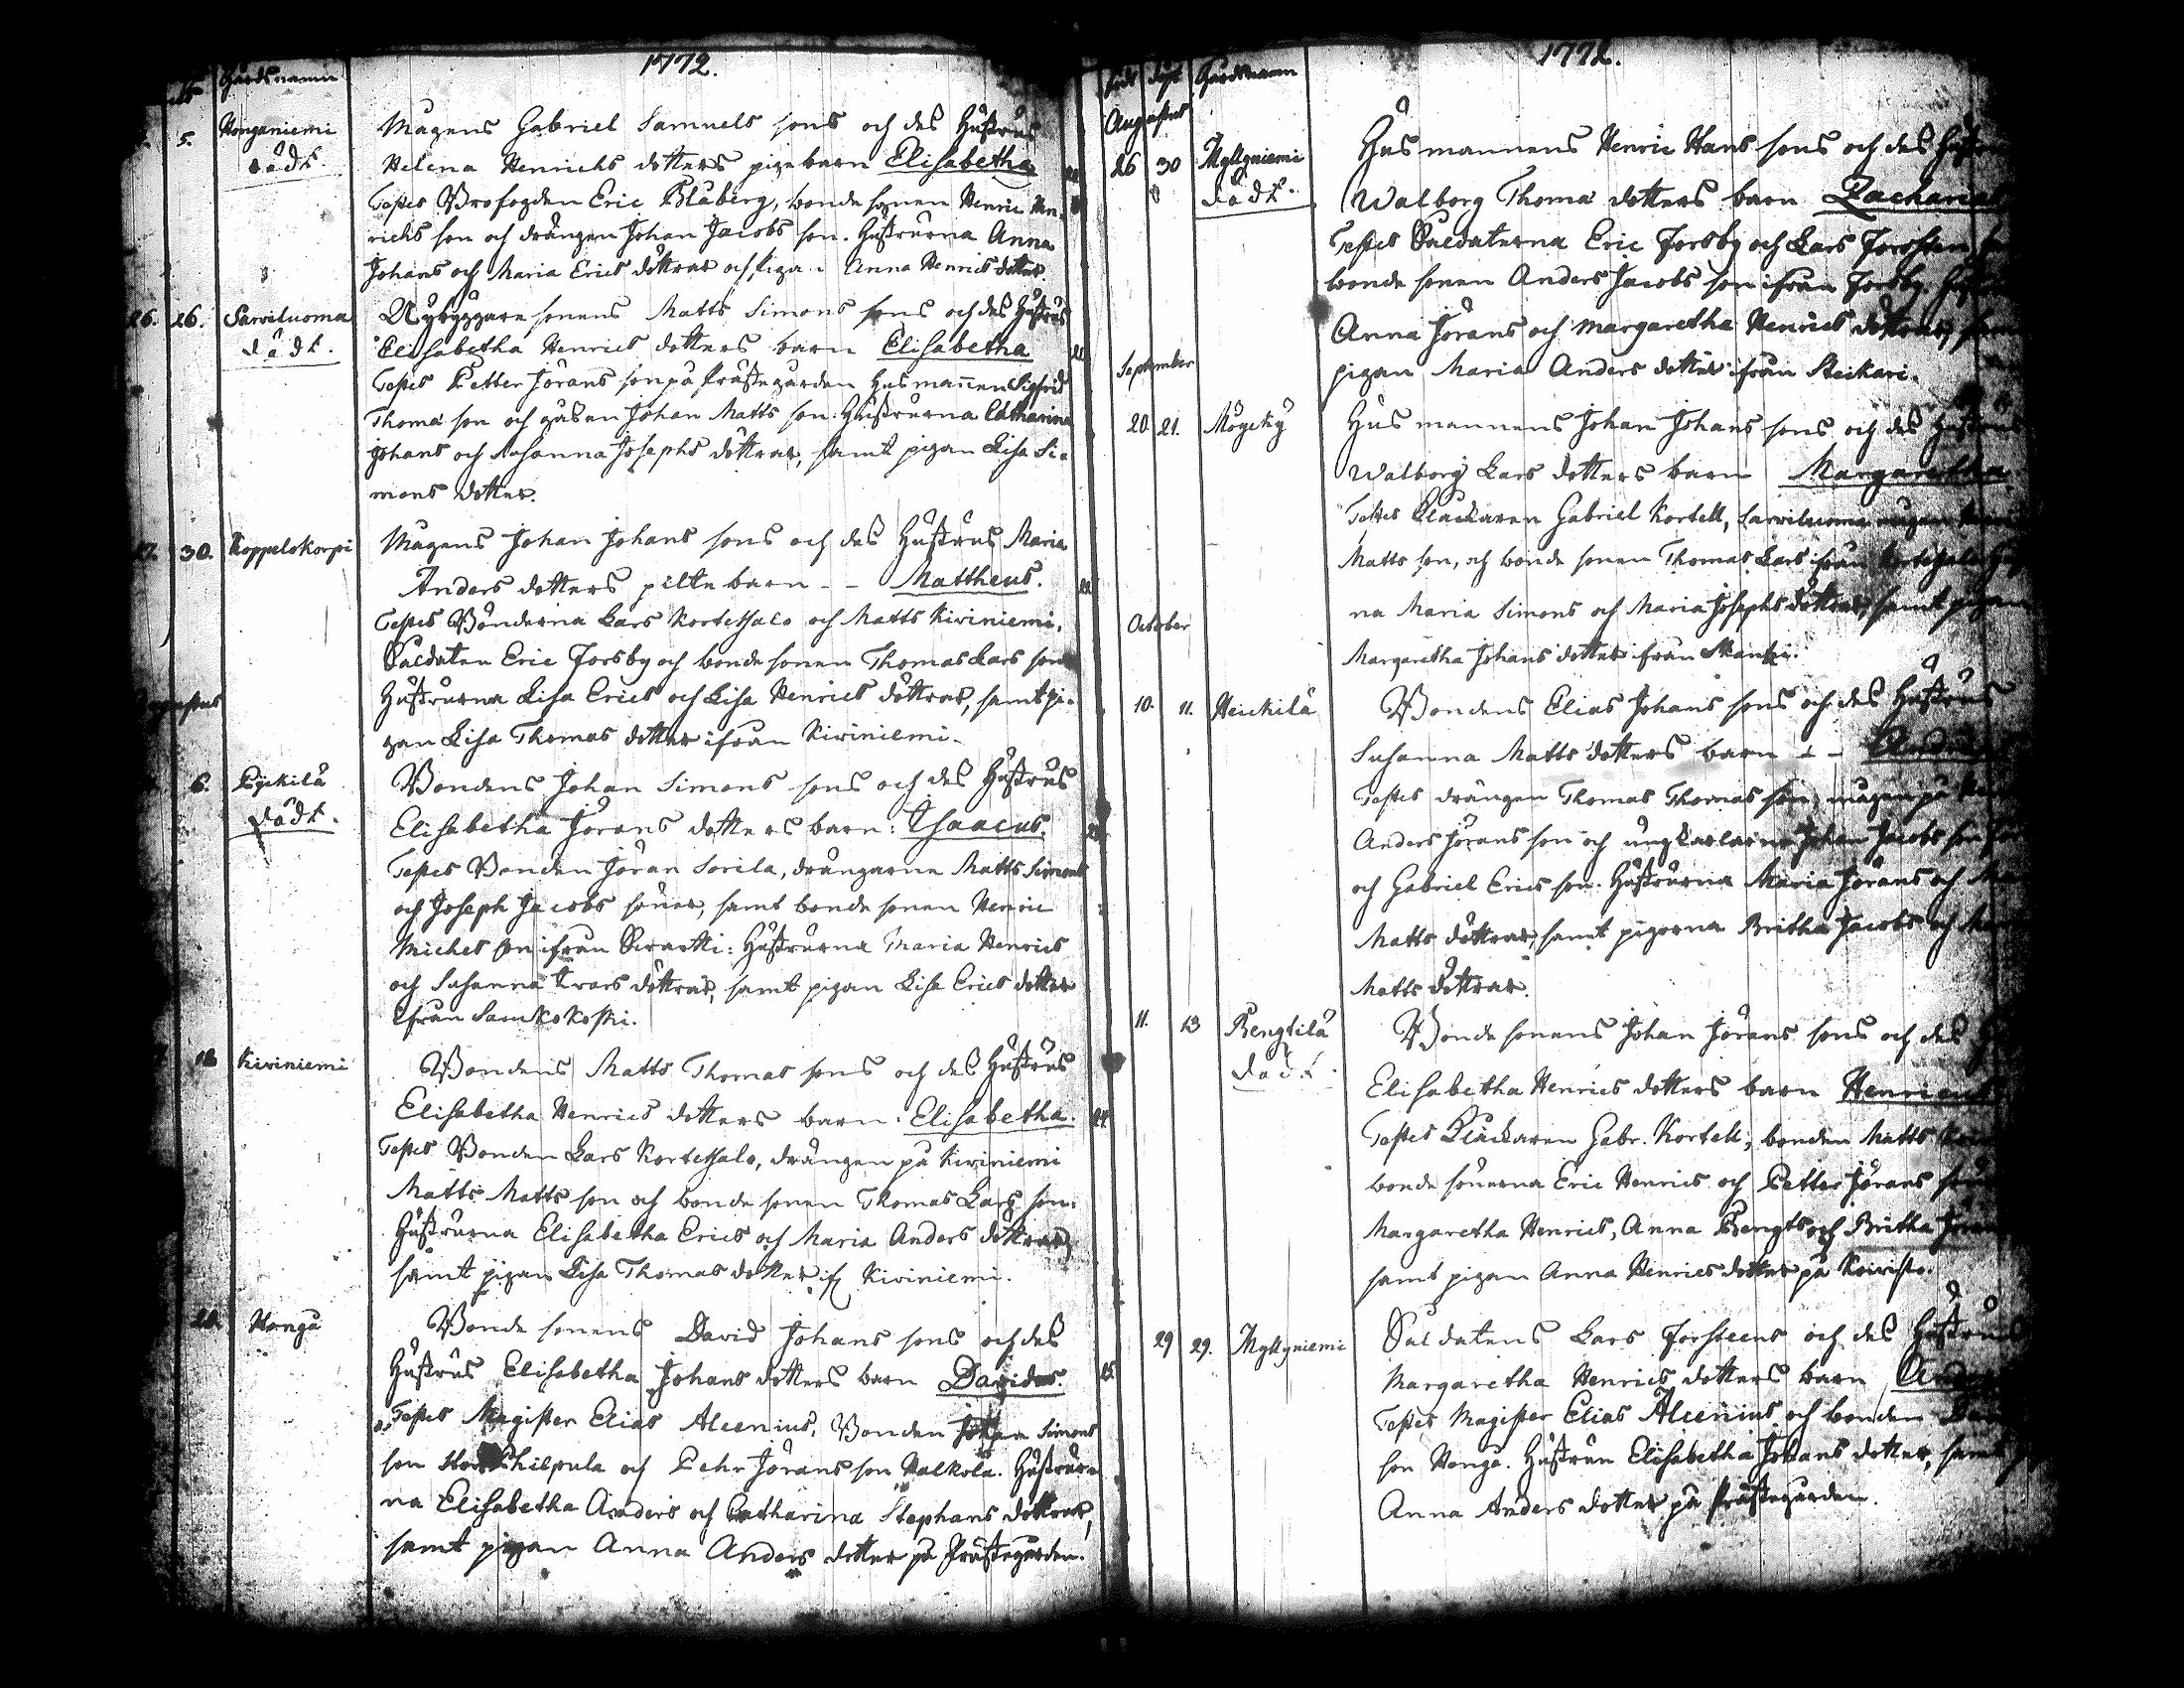 Gårdsnamn
1772.
5. Honganiemi
död.
Mågens Gabriel Samuels sons och des Hustrus
Helena Henrichs dotters pigebarn Elisabetha
Testes Brofogden Eric Blåberg, bonde sonen Henric Hen-
richs son och drängen Johan Jacobs son. Hustrurna Anna
Johans och Maria Erics döttrar och pigan Anna Henrics dotter.
26. 26. Sarviluoma
död.
Nybyggare sonens Matts Simons sons och des Hustrus
Elisabetha Henrics dotters barn Elisabetha
Testes Petter Jörans son på Prästegården Husmannen Sigfrid
Thomæ son och gåssen Johan Matts son. Hustrurna Catharina
Johans och Susanna Josephs döttrar, samt pigan Lisa Si-
mons dotter.
27. 30. Koppelokorpi
Mågens Johan Johans sons och des Hustrus Maria
Anders dotters piltebarn - - Mattheus.
Testes Bönderna Lars Kortesalo och Matts Kiviniemi,
Saldaten Eric Forsby och bonde sonen Thomas Lars son
Hustrurna Lisa Erics och Lisa Henrics döttrar, samt pi-
gan Lisa Thomas dotter ifrån Kiviniemi.
6. Pyckilä
död.
Bondens Johan Simons sons och des Hustrus
Elisabetha Jörans dotters barn: Isaacus.
Testes Bonden Jöran Sorila, drängarne Matts Simons
och Joseph Jacobs söner, samt bonde sonen Henric
Michels son ifrån : Hustrurna Maria Henrics
och Susanna Ivars döttrar, samt pigan Lisa Erics dotter
ifrån Samkokoski.
Kiviniemi
Bondens Matts Thomas sons och des Hustrus
Elisabetha Henrics dotters barn: Elisabetha. 24.
Testes Bonden Lars Kortesalo, drängen på Kiviniemi
Matts Matts son och bonde sonen Thomas Lars son.
Hustrurna Elisabetha Erics och Maria Anders döttrar,
samt pigan Lisa Thomas dotter if. Kiviniemi.
Honga
Bonde sonens David Johans sons och des
Hustrus Elisabetha Johans dotters barn Davidus. 25.
Testes Magister Elias Alcenius, Bonden Johan Simons
son och Pehr Jörans son Halkola. Hustrur-
na Elisabetha Anders och Catharina Stephans döttrar,
samt pigan Anna Anders dotter på Prästegården.
1772.
Gårdsnamn
Augustus
26 30 Myllyniemi
död.
Husmannens Henric Hans sons och des
Walborg Thomæ dotters barn Zacharias
Testes Saldaterna Eric Forsby och Lars Forssten,
bonde sonen Anders Jacobs son ifrån Forsby.
Anna Jörans och Margaretha Henrics döttrar,
pigan Maria Anders dotter ifrån Steikari.
September
20. 21. Möycky
Husmannens Johan Johans sons och des Hustrus
Walborg Lars dotters barn Margaretha
Testes Klackaren Gabriel Kortell, Sarviluoma mågen
Matts son, och bonde sonen Thomas Lars ifrån Kortesalo
na Maria Simons och Maria Josephs döttrar, samt pigan
Margaretha Johans dotter ifrån
October
10. 11. Heickilä
Bondens Elias Johans sons och des Hustrus
Susanna Matts dotters barn - -
Testes drängen Thomas Thomas son, mågen på
Anders Jörans son och ungkarlarne Johan Jacobs son
och Gabriel Erics son. Hustrurna Maria Jörans och
Matts döttrar, samt pigorna Britha Jacobs och
Matts döttrar.
11. 13 Bengtilä
död.
Bonde sonens Johan Jörans sons och des
Elisabetha Henrics dotters barn Henricus
Testes Klackaren Gabr. Kortell, bonden Matts
bonde sönerna Eric Henrics och Petter Jörans
Margaretha Henrics, Anna Bengts och Britha
samt pigan Anna Henrics dotter på Koivisto.
29 29. Myllyniemi
Saldatens Lars Forsteens och des Hustrus
Margaretha Henrics dotters barn
Testes Magister Elias Alcenius och bonden
son Honga. Hustrun Elisabetha Johans dotter, samt
Anna Anders dotter på Prästegården.